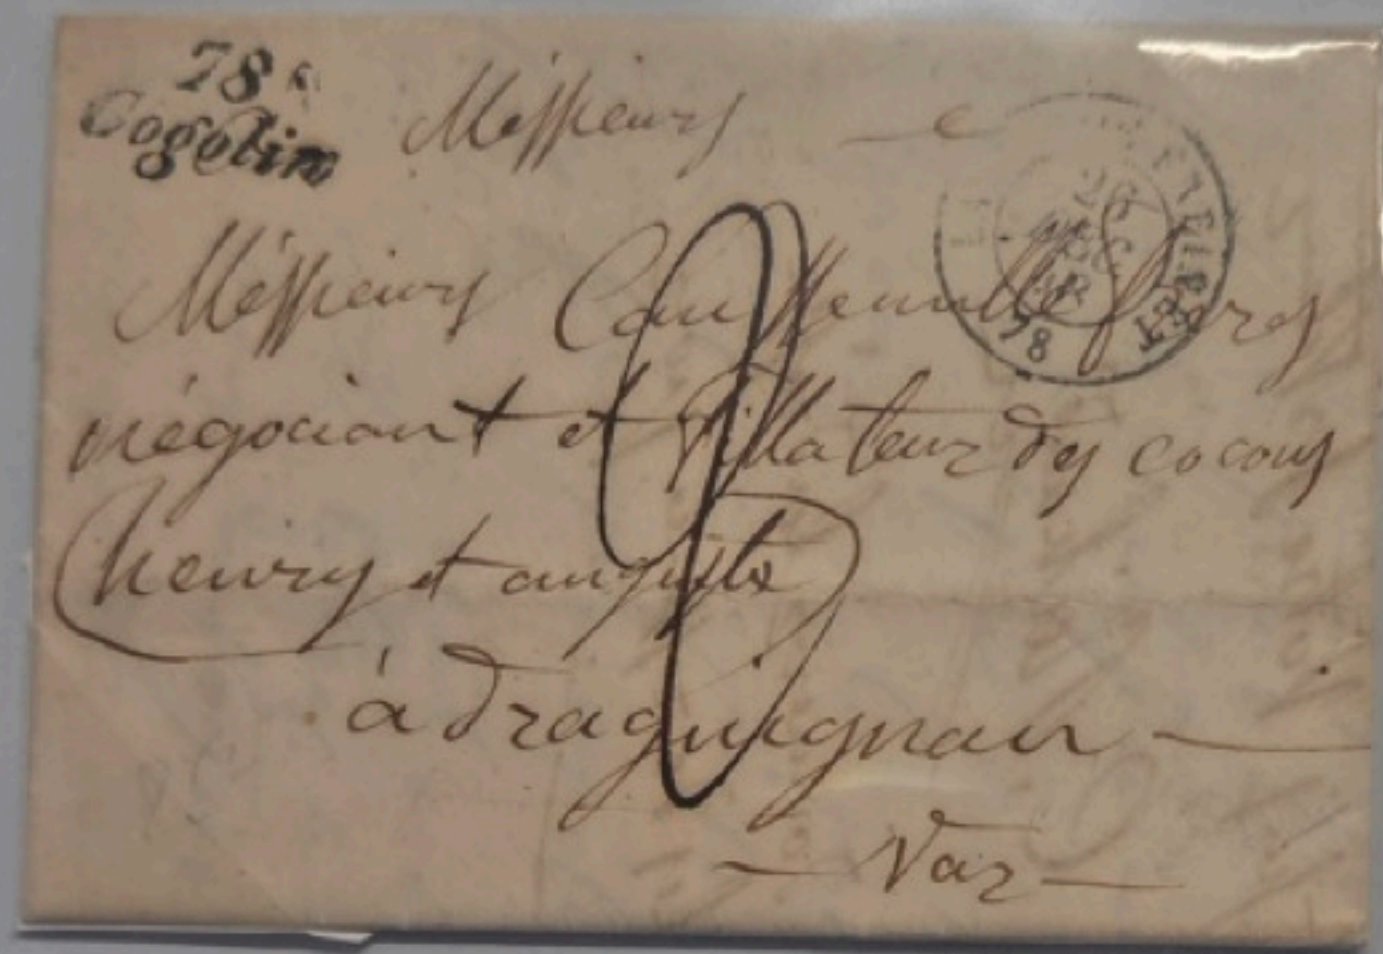 78
Cogolin
Messieurs
Messieurs frères
négociant et fillateur des cocons
henry et auguste
à draguignan
Var
26
78